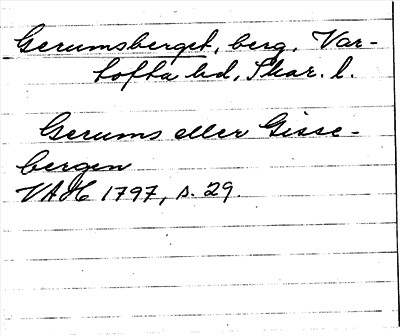 Gerumsberget, berg, Var-
tofta hd, Skar. l.
Gerums eller Gisse-
bergen
VAH 1797, s. 29.